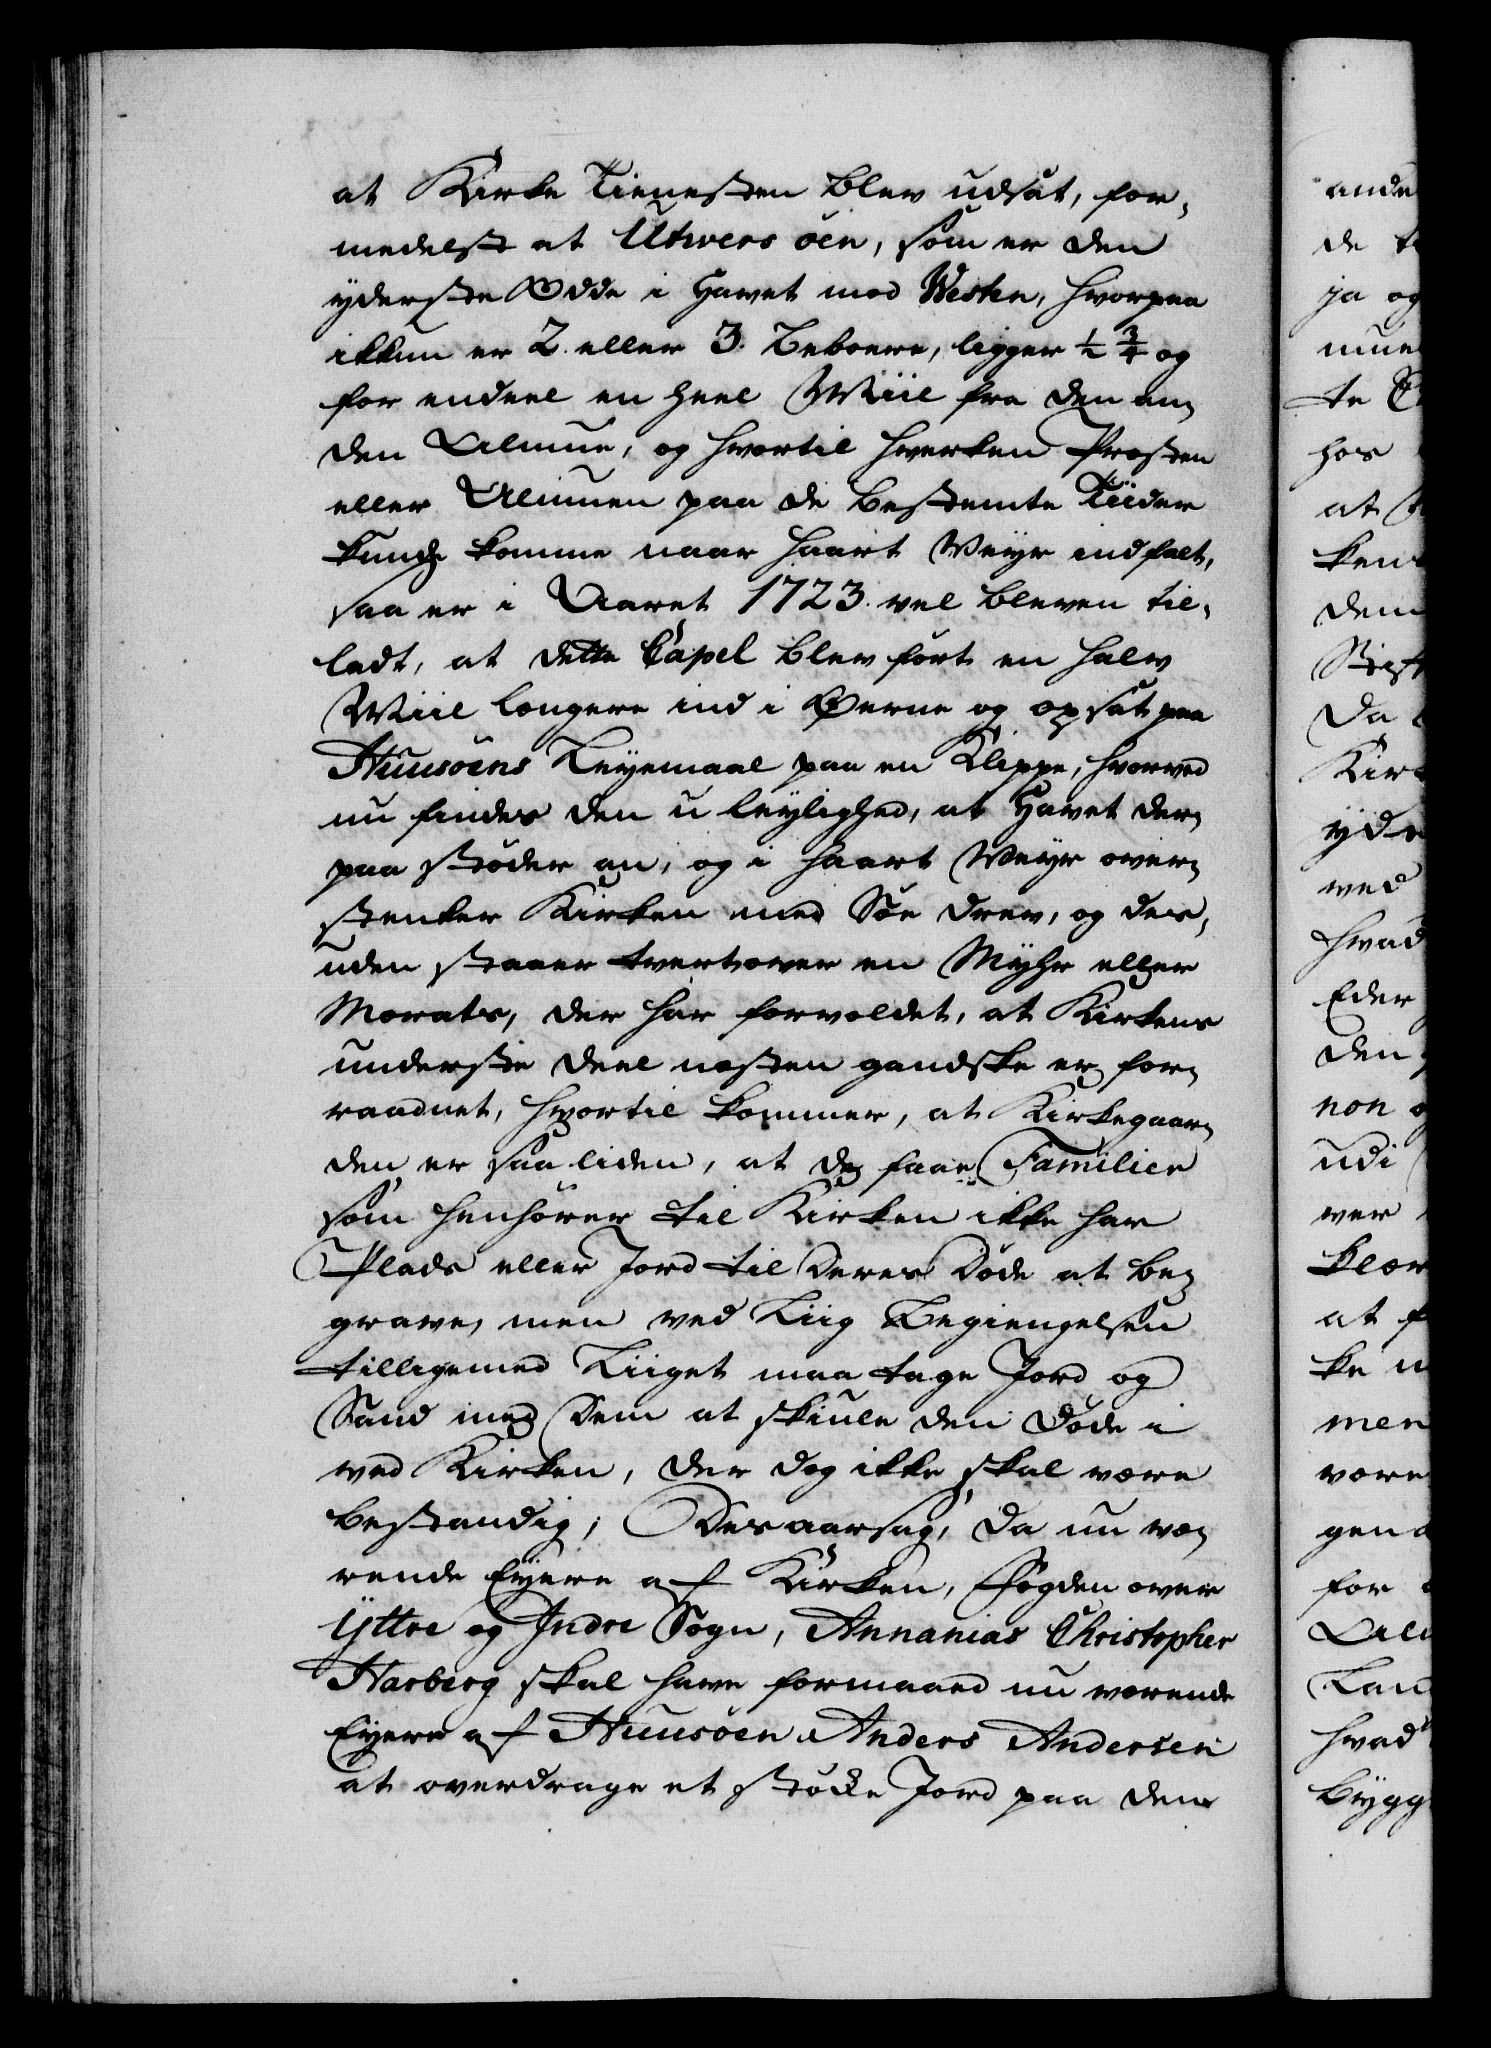 at Kirke Tienesten blev udsat, for,
medelst at Utvers öen, som er den
yderste Odde i Havet mod Westen, hvorpaa
ikkun er 2 eller 3. Beboere, ligger ½ ¾ og
for endeel en heel Miil fra den an,
den Almue, og hvortil hverken Præsten
eller Almuen paa de bestemte Tiider
kunde komme naar haart Veyr indfalt,
saa er i Aaret 1723. vel bleven til,
ladt, at dette Capel blev fört en halv
Miil længere ind i Öerne og opsat paa
Huusöens Leyemaal paa en Klippe, hvorved
nu findes den u leylighed, at Havet der,
paa støder an, og i haart Veyr over,
stenker Kirken med Söe drev, og des,
uden staaer tvertover en Myhr eller
Morats, der har forvoldet, at Kirkens
underste Deel næsten gandske er for,
raadnet, hvortil kommer, at Kirkegaar,
den er saa liden, at de faae Familier
som henhörer til Kirken ikke har
Plads eller Jord til Deres Döde at be,
grave, men ved Liig Begiengelsen
tilligemed Liiget maa tage Jord og
Sand med Dem at skiule den Döde i
ved Kirken, der dog ikke skal være
bestandig; Desaarsag, da nu væ,
rende Eyere af Kirken, Fogden over
Yttre og Indre Sogn, Annanias Christopher
Harberg skal have formaaed nu værende
Eyere af Huusöen Anders Andersen
at overdrage et stökke Jord paa den

ande
de t
ja og
mue
te
hos
at
ken
dem
Stift
da
Kir
yde
ved
hvad
Eder
den
non
udi
ver
klær
at f
ke
men
være
gen
for
Alm
Land
hvad
bygg